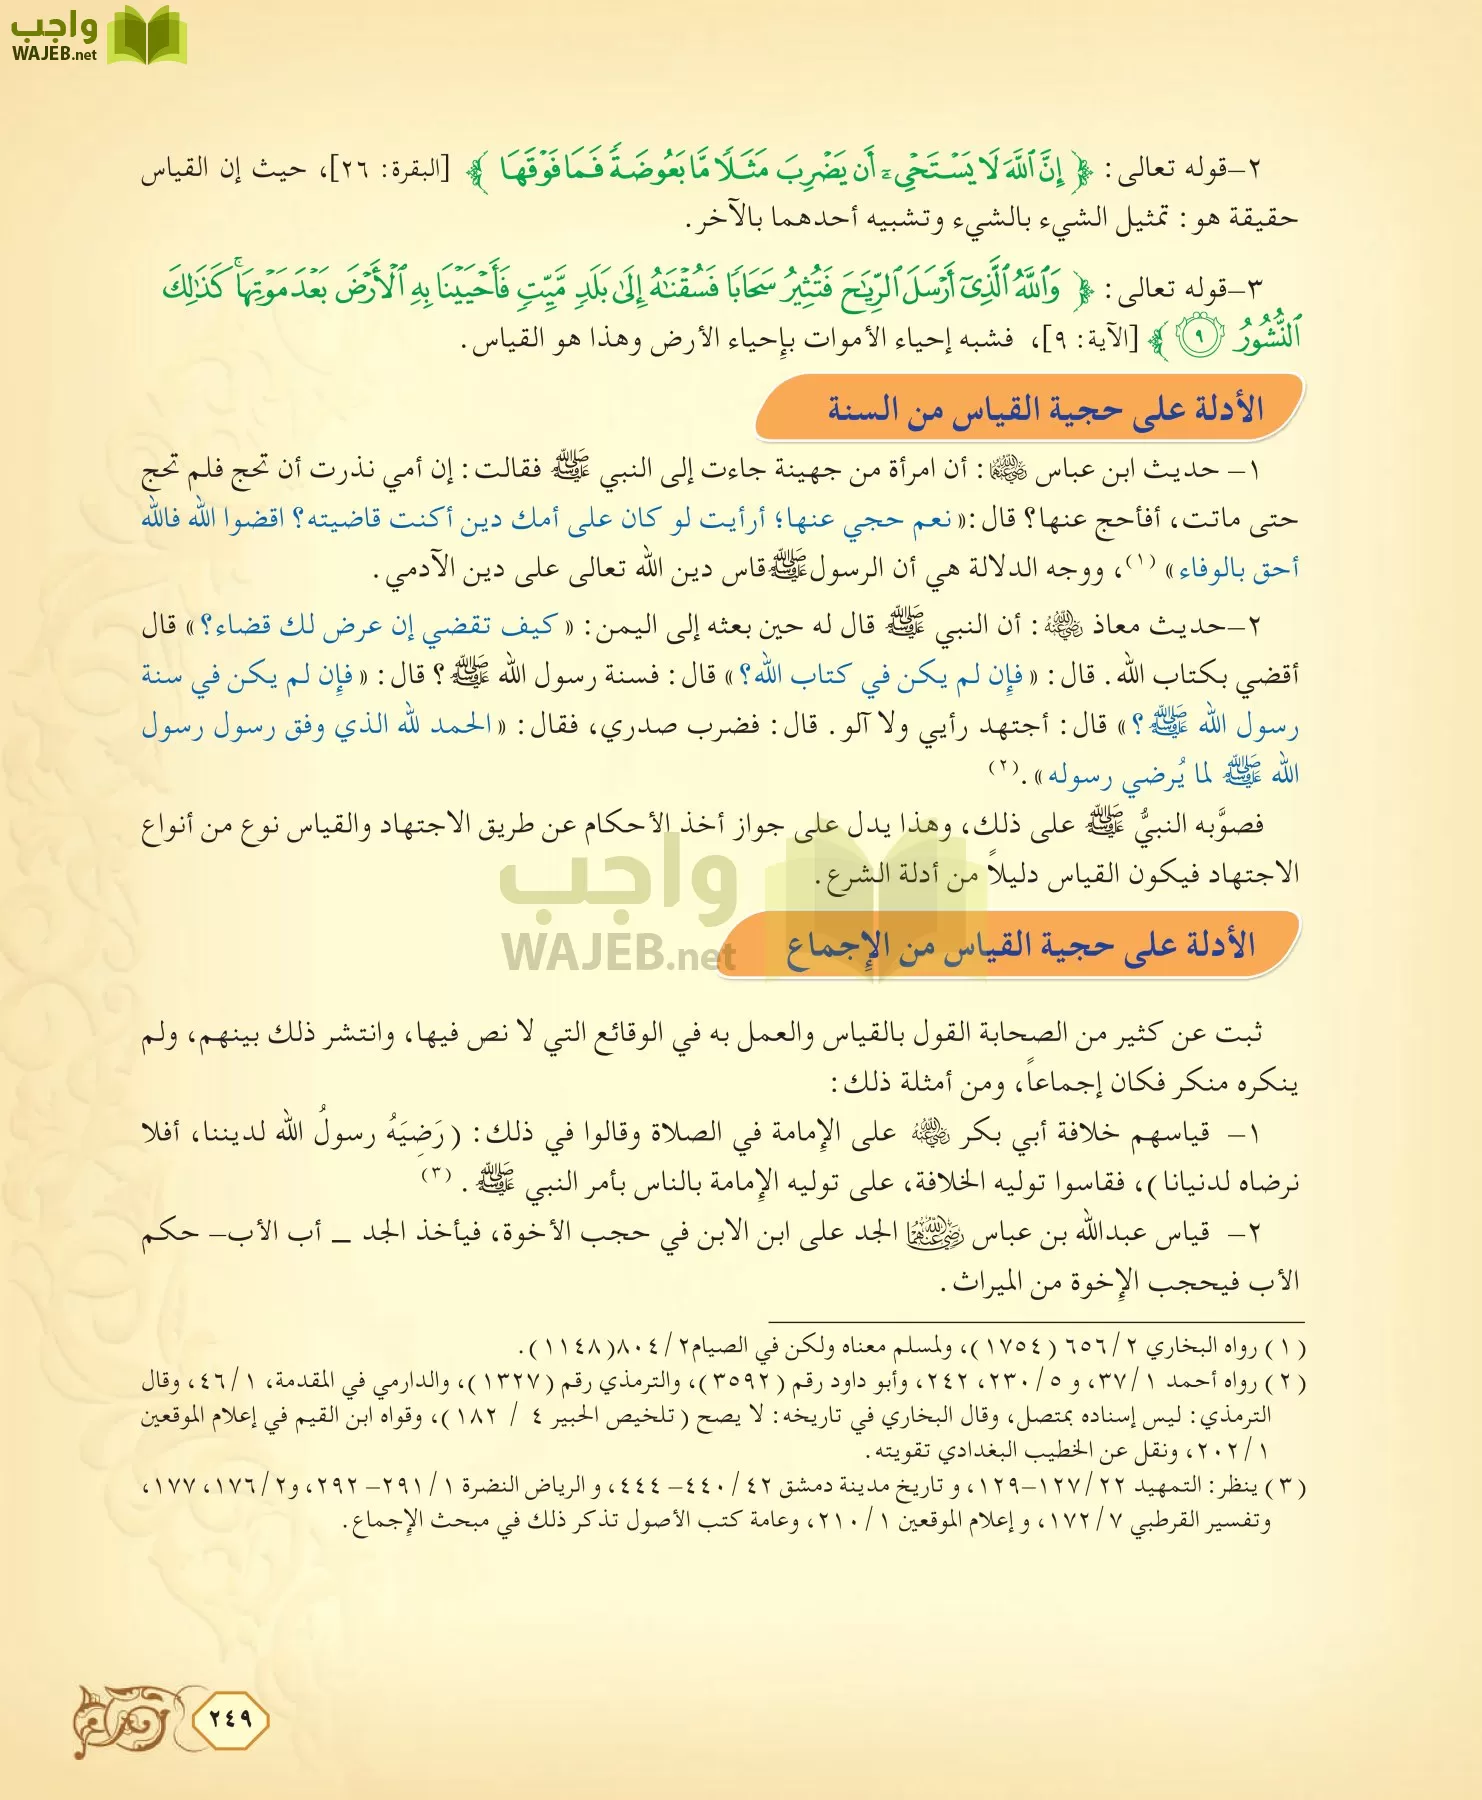 واجب
WAJEB.net
٢–قوله تعالى: ﴿ إِنَّ ٱللَّهَ لَا يَسْتَحْىِۦٓ أَن يَضْرِبَ مَثَلًا مَّا بَعُوضَةً فَمَا فَوْقَهَا ﴾ [البقرة: ٢٦]، حيث إن القياس
حقيقة هو: تمثيل الشيء بالشيء وتشبيه أحدهما بالآخر.
٣–قوله تعالى: ﴿ وَٱللَّهُ ٱلَّذِىٓ أَرْسَلَ ٱلرِّيَـٰحَ فَتُثِيرُ سَحَابًا فَسُقْنَـٰهُ إِلَىٰ بَلَدٍ مَّيِّتٍ فَأَحْيَيْنَا بِهِ ٱلْأَرْضَ بَعْدَ مَوْتِهَا ۚ كَذَٰلِكَ
ٱلنُّشُورُ ٩ ﴾ [الآية: ٩]، فشبه إحياء الأموات بإحياء الأرض وهذا هو القياس.
الأدلة على حجية القياس من السنة
١– حديث ابن عباس رضي الله عنهما: أن امرأة من جهينة جاءت إلى النبي ﷺ فقالت: إن أمي نذرت أن تحج فلم تحج
حتى ماتت، أفأحج عنها؟ قال:« نعم حجي عنها؛ أرأيت لو كان على أمك دين أكنت قاضيته؟ اقضوا الله فالله
أحق بالوفاء» (١)، ووجه الدلالة هي أن الرسول ﷺ قاس دين الله تعالى على دين الآدمي.
٢–حديث معاذ رضي الله عنه: أن النبي ﷺ قال له حين بعثه إلى اليمن: « كيف تقضي إن عرض لك قضاء؟» قال
أقضي بكتاب الله. قال: « فإن لم يكن في كتاب الله؟» قال: فسنة رسول الله ﷺ؟ قال: « فإن لم يكن في سنة
رسول الله ﷺ؟» قال: أجتهد رأيي ولا آلو. قال: فضرب صدري، فقال: « الحمد لله الذي وفق رسول رسول
الله ﷺ لما يُرضي رسوله».(٢)
فصوَّبه النبيُّ ﷺ على ذلك، وهذا يدل على جواز أخذ الأحكام عن طريق الاجتهاد والقياس نوع من أنواع
الاجتهاد فيكون القياس دليلاً من أدلة الشرع.
واجب
WAJEB.net
الأدلة على حجية القياس من الإجماع
ثبت عن كثير من الصحابة القول بالقياس والعمل به في الوقائع التي لا نص فيها، وانتشر ذلك بينهم، ولم
ينكره منكر فكان إجماعاً، ومن أمثلة ذلك:
١– قياسهم خلافة أبي بكر رضي الله عنه على الإمامة في الصلاة وقالوا في ذلك: (رَضِيَهُ رسولُ الله لديننا، أفلا
نرضاه لدنيانا)، فقاسوا توليه الخلافة، على توليه الإمامة بالناس بأمر النبي ﷺ. (٣)
٢– قياس عبدالله بن عباس رضي الله عنهما الجد على ابن الابن في حجب الأخوة، فيأخذ الجد – أب الأب– حكم
الأب فيحجب الإخوة من الميراث.
(١) رواه البخاري ٢/ ٦٥٦ (١٧٥٤)، ولمسلم معناه ولكن في الصيام٢/ ٨٠٤(١١٤٨).
(٢) رواه أحمد ١/ ٣٧، و ٥/ ٢٣٠، ٢٤٢، وأبو داود رقم (٣٥٩٢)، والترمذي رقم (١٣٢٧)، والدارمي في المقدمة، ١/ ٤٦، وقال
الترمذي: ليس إسناده بمتصل، وقال البخاري في تاريخه: لا يصح (تلخيص الحبير ٤ / ١٨٢)، وقواه ابن القيم في إعلام الموقعين
١/ ٢٠٢، ونقل عن الخطيب البغدادي تقويته.
(٣) ينظر: التمهيد ٢٢/ ١٢٧–١٢٩، و تاريخ مدينة دمشق ٤٢/ ٤٤٠– ٤٤٤، و الرياض النضرة ١/ ٢٩١– ٢٩٢، و٢/ ١٧٦، ١٧٧،
وتفسير القرطبي ٧/ ١٧٢، و إعلام الموقعين ١/ ٢١٠، وعامة كتب الأصول تذكر ذلك في مبحث الإجماع.
٢٤٩